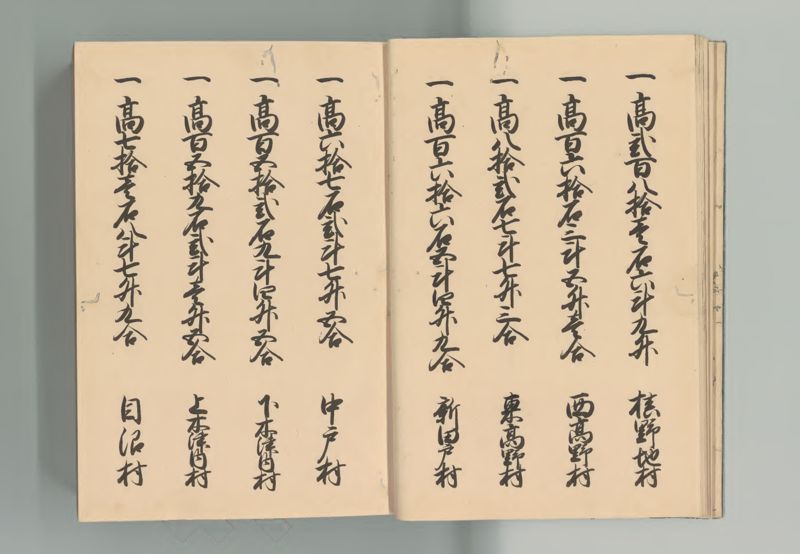 一高弐百八拾壱石六斗九升 横野地村
一高百六拾石二斗五升壱合 西高野村
一高八拾弐石七斗七升三合 東高野村
一高百六拾六石五斗四升九合 新田戸村
一高六拾七石弐斗七升五合 中戸村
一高百五拾弐石九斗四升五合 下木津内村
一高百五拾九石弐斗壱升五合 上木津内村
一高七拾壱石八斗七升九合 目沼村